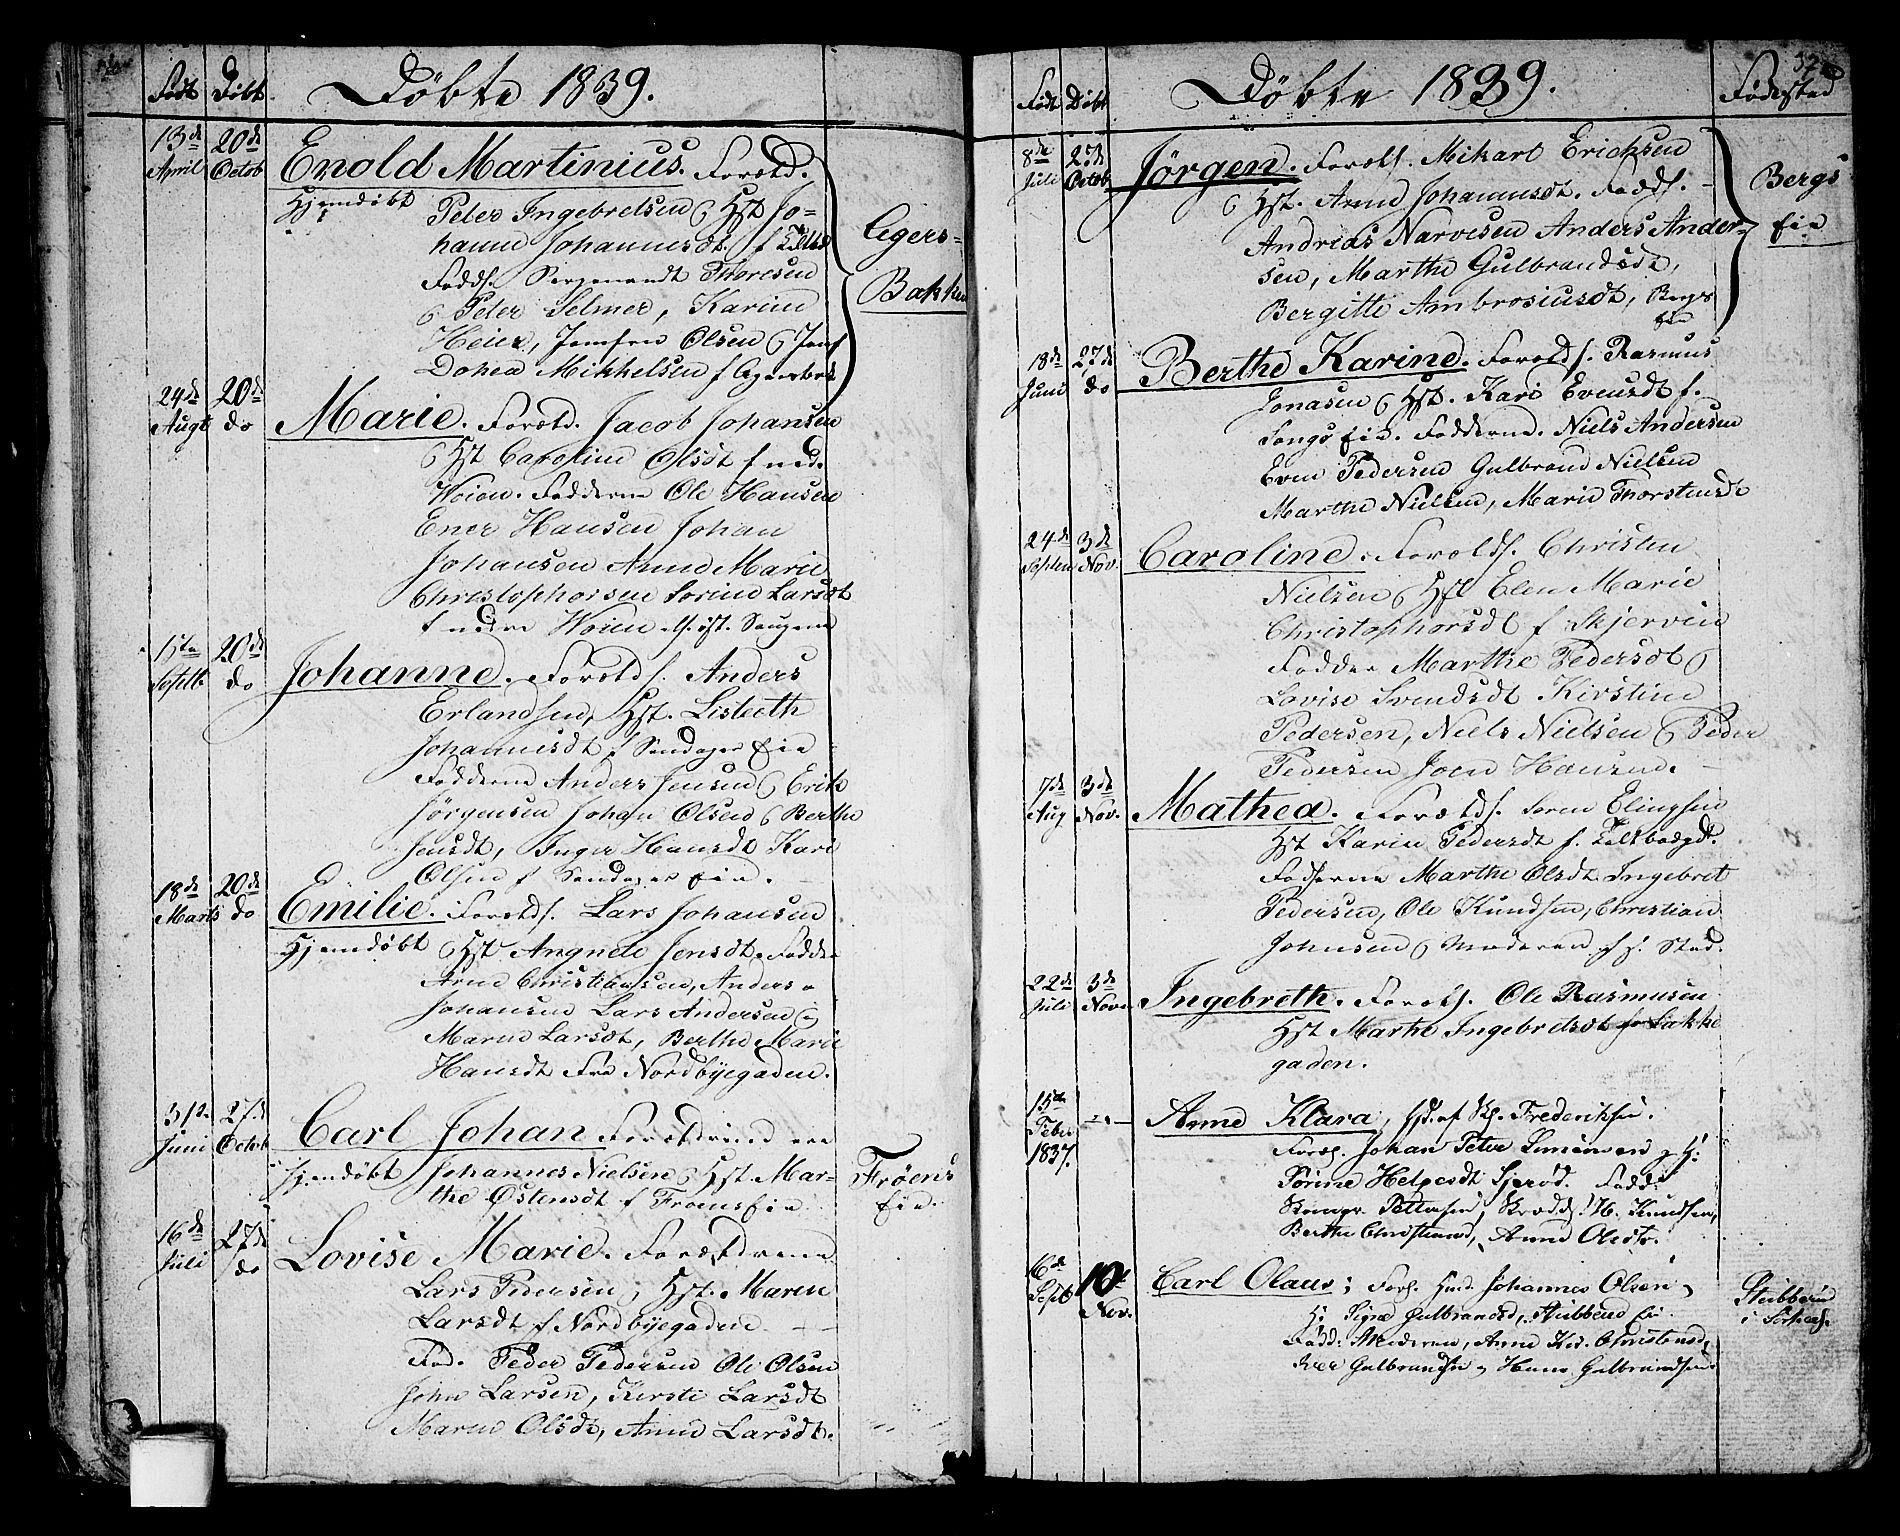 Født Døbt Døbte 1839.
13de April 20de Octob Enold Martinius. Foræld.
Hjemdøbt Peter Ingebretsen & Hst Jo-
hanne Johannesdt. f
Fadd. Thoresen
& Peter Selmer, Karine
Heier, Jomfru Olsen & Jomf
Dohea Mikkelsen f Agersbak
Agers-
Bakken
24de Augt 20de do Marie. Foræld. Jacob Johansen
& Hst Caroline Olsdt f ned.
Woien. Fadderne Ole Hansen
Ener Hansen Johan
Johansen Anne Marie
Christophorsen Sorine Larsdt
f nedre Woien
Septb 20de do Johanne. Forælds. Anders
Erlandsen, Hst. Lisbeth
Johannesdt f Sandager Eie
Fadderne Anders Jensen & Erik
Jørgensen Johan Olsen & Berthe
Jensdt, Inger Hansdt Kari
Olsen f Sandager Eie.
18de Marts 20de do Emilie. Forælds. Lars Johansen
Hjemdøbt & Hst Angnete Jensdt. Fadde
Arne Christiansen, Anders
Johansen Lars Andersen &
Maren Larsdt, Berthe Marie
Hansdt Fra Nordbyegaden.
Juni 27de Octob Carl Johan Forældrene ere
Hjemdøbt Johannes Nielsen & Hst Mar-
the Østensdt f Froens Eie
Frøens
Eie.
16de Juli 27de do Lovise Marie. Forældrene
Lars Pedersen, Hst. Maren
Larsdt f Nordbyegaden
Fad. Peder Pedersen Ole Olsen
John Larsen, Kersti Larsdt
Maren Olsdt, Anne Larsdt.
Født Døbt Døbte 1839. Fødested
8de Juli Octob Jørgen. Foræls. Mikael Erichsen
& Hst. Anne Johannesdt. Fadds.
Andreas Narvesen Anders Ander-
sen, Marthe Gulbrandsdt,
Bergitte Ambrosiusdt, Bergs
Eie
Bergs
Eie
18de Juni 27de do Berthe Karine. Forælds. Rasmus
Jonasen & Hst. Kari Evensdt f.
Songs Eie. Fadderne. Niels Andersen
Even Pedersen Gulbrand Nielsen
Marthe Nielsen, Marie Thorstensdt
24de Septem 3de Nov. Caroline. Forælds. Christen
Nielsen & Hst Elen Marie
Christophorsdt f Skjerven
Fadder Marthe Pedersdt &
Lovise Svendsdt Kirstine
Pedersen, Niels Nielsen & Peder
Pedersen Joen Hansen.
7de Aug 3de Nov. Mathea. Forælds. Soren Elingsen
Hst Karen Pedersdt f.
Fadderne Marthe Olsdt Ingebret
Pedersen, Ole Knudsen, Christian
Johnsen & Moderen
22de Juli 3de Nov Ingebreth. Foræls. Ole Rasmusen
Hst Marthe Ingebretsdt fr Lakke
gaden.
15de Febr 1837. Anne Klara, Frederiksen.
Foræ. Johan Peter Simensen & H:
Sørine Helgesdt. Fadd:
Pettersen, M. Knudsen,
Berthe Christiansd, Anne Olsdtr.
6de Sept 10de Nov. Carl Olaus; Foræ. Johannes Olsen
H: Signe Gulbrandsd, Stubberud Eie
Fadd: Moderen, Anne Kir. Christensd,
Gulbrandsen & Hans Gulbrandsen.
Stubberud
i Sørked.